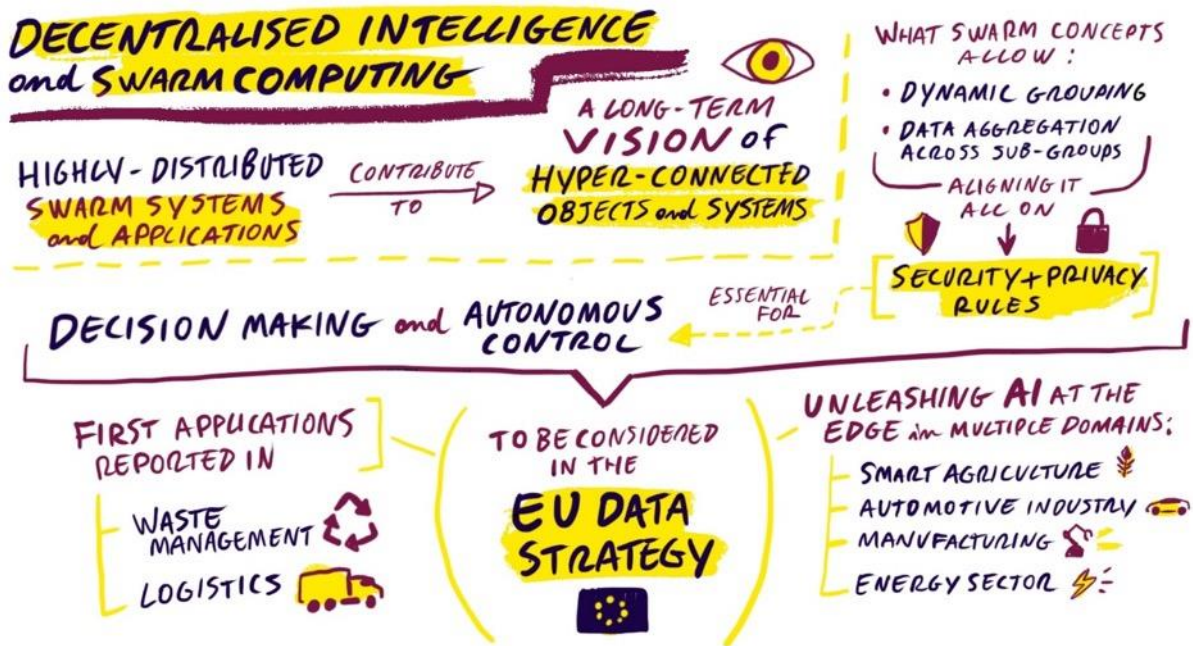 DECENTRALISED INTELLIGENCE
and SWARM COMPUTING
HIGHLY-DISTRIBUTED
SWARM SYSTEMS
and APPLICATIONS
CONTRIBUTE
TO
A LONG-TERM
VISION OF
HYPER-CONNECTED
OBJECTS and SYSTEMS
WHAT SWARM CONCEPTS
ALLOW:
• DYNAMIC GROUPING
• DATA AGGREGATION
ACROSS SUB-GROUPS
ALIGNING IT
ALL ON
SECURITY + PRIVACY
RULES
ESSENTIAL
FOR
DECISION MAKING and AUTONOMOUS
CONTROL
FIRST APPLICATIONS
REPORTED IN
WASTE
MANAGEMENT
LOGISTICS
TO BE CONSIDERED
IN THE
EU DATA
STRATEGY
UNLEASHING AI AT THE
EDGE in MULTIPLE DOMAINS:
SMART AGRICULTURE
AUTOMOTIVE INDUSTRY
MANUFACTURING
ENERGY SECTOR